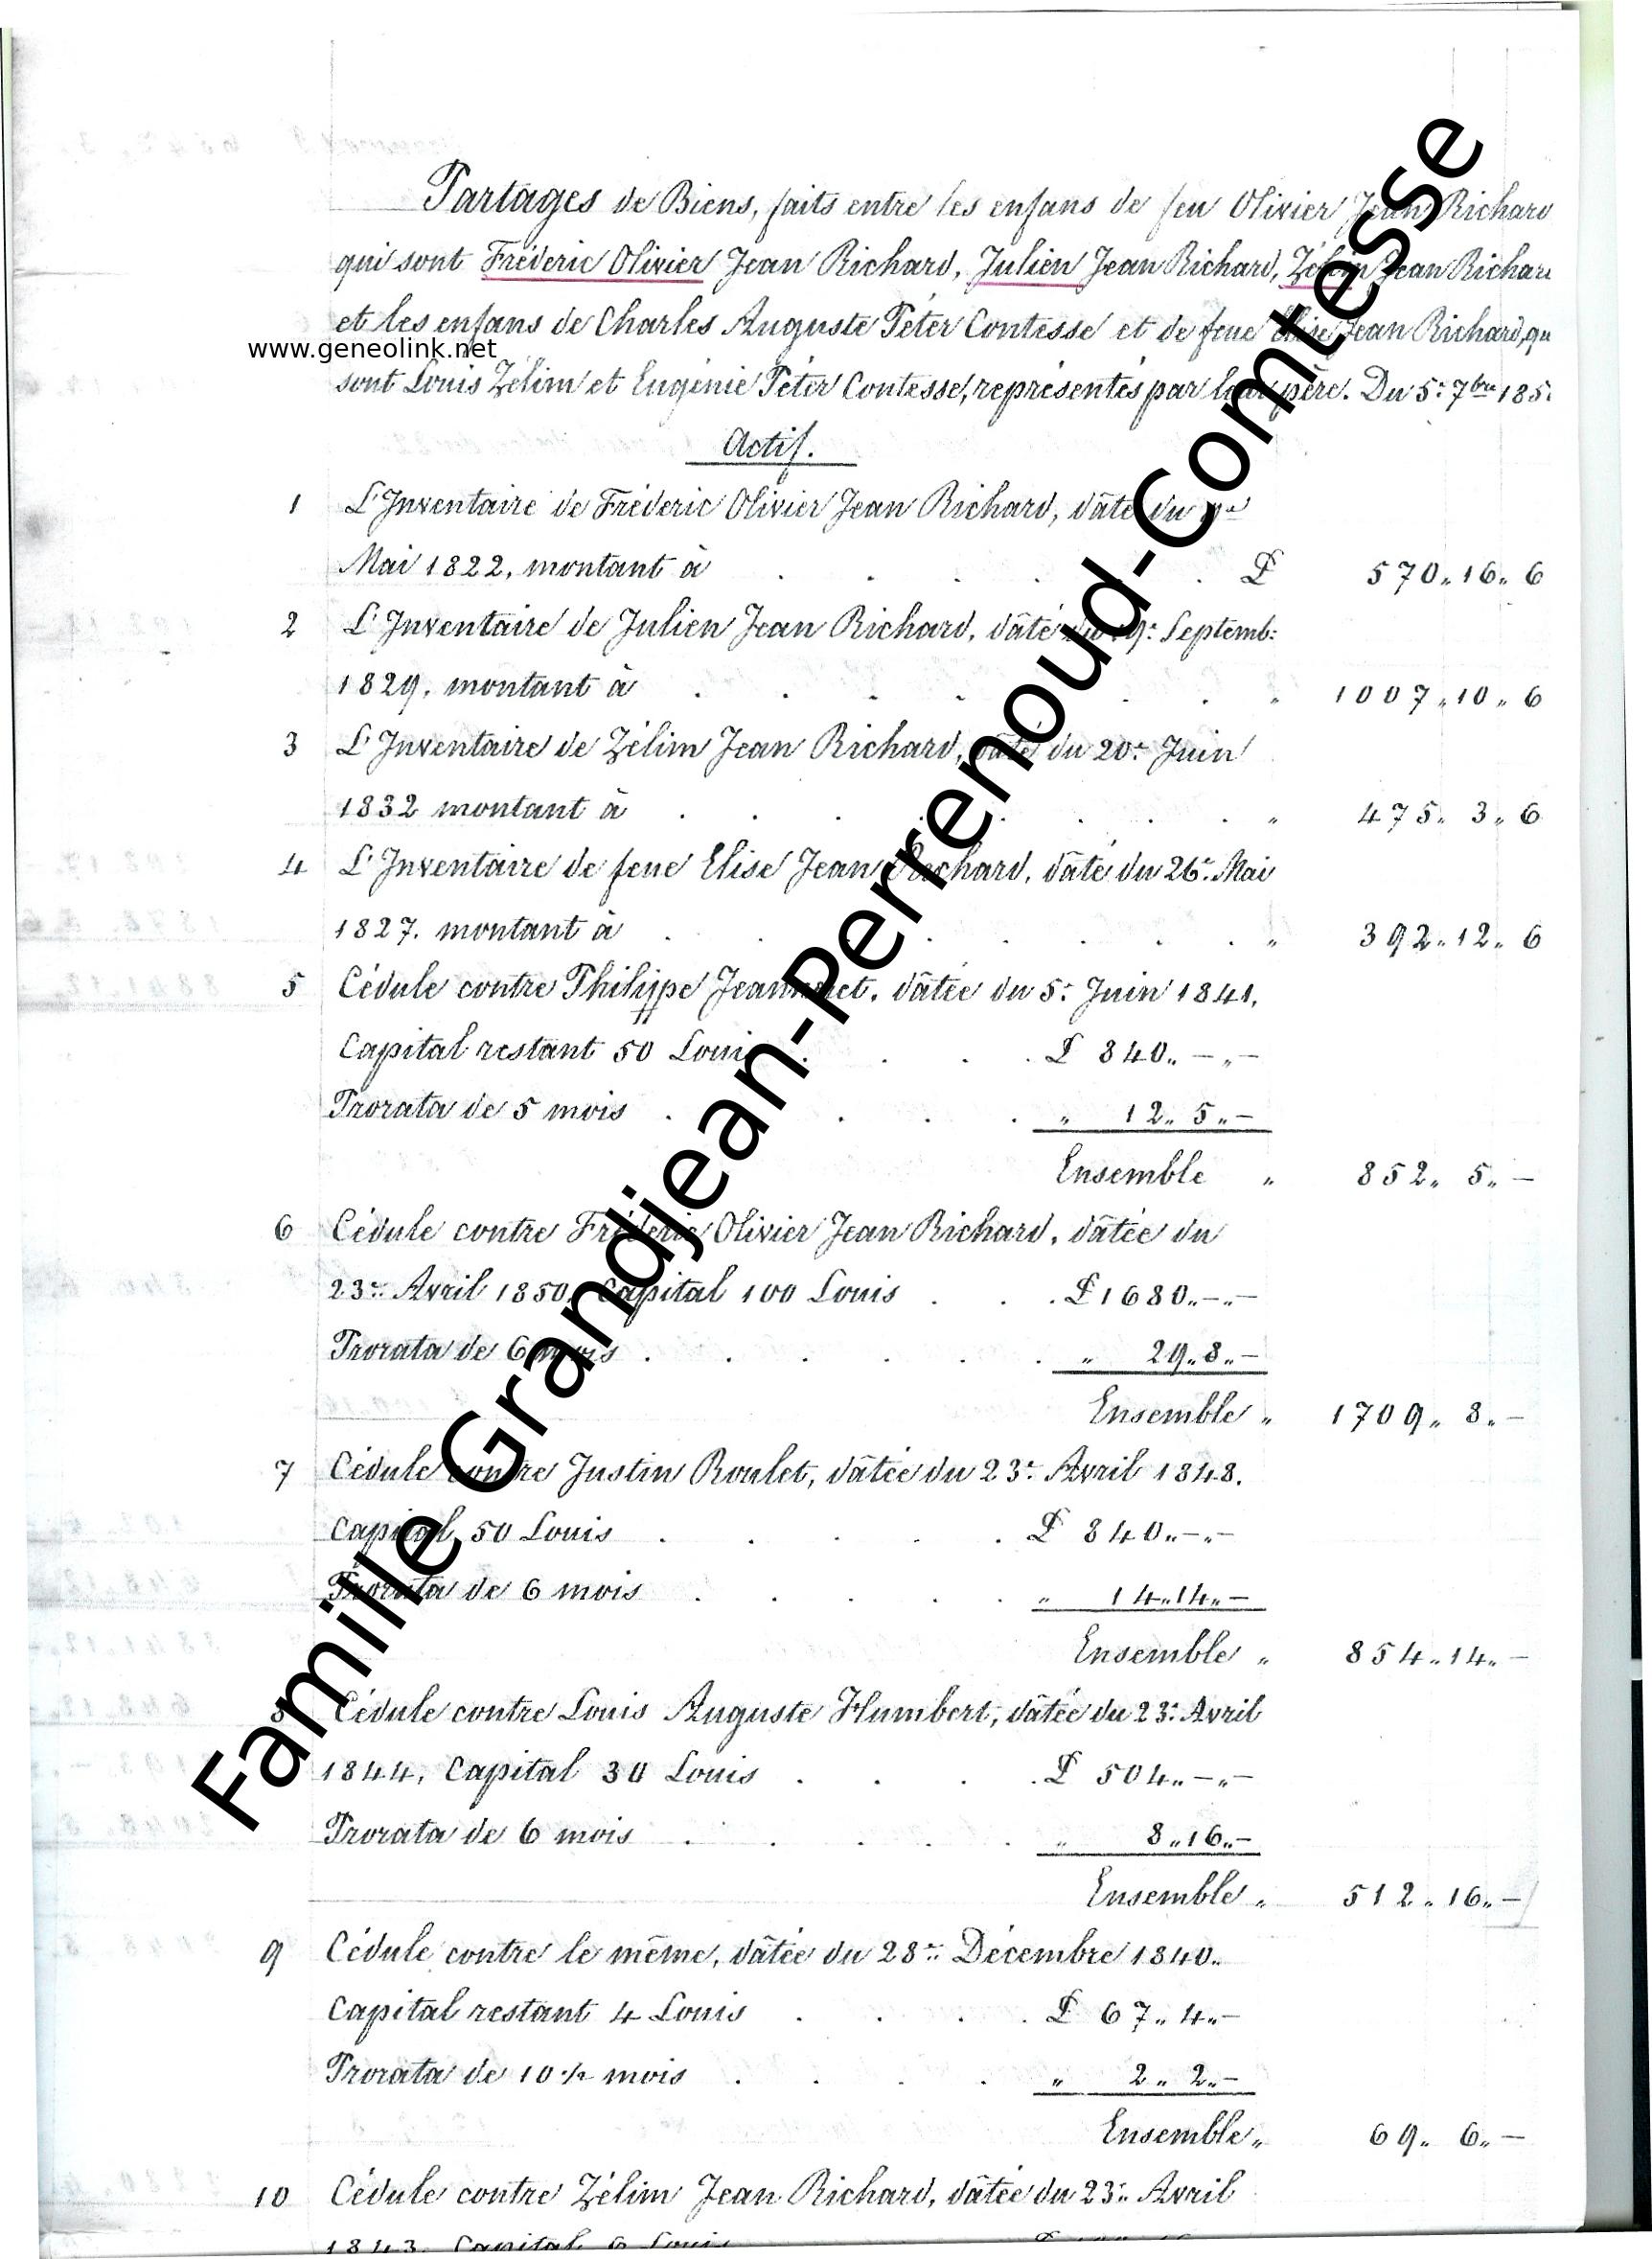 Partages de Biens, faits entre les enfans de feu Olivier Jean Richard
qui sont Fréderic Olivier Jean Richard, Julien Jean Richard, Zélim Jean Richar
et les enfans de Charles Auguste Péter Contesse et de feue Elise Jean Richard, qu
www.geneolink.net
sont Louis Zélim et Eugénie Péter Contesse, représentés par leur père. Du 5: 7bre 185
Actif.
1 L'Inventaire de Fréderic Olivier Jean Richard, dâté du
Mai 1822, montant à £ 570" 16" 6
2 L'Inventaire de Julien Jean Richard, dâté du 9: Septemb:
1829, montant à " 1007" 10" 6
3 L'Inventaire de Zélim Jean Richard, dâté du 20: Juin
1832 montant à " 475" 3" 6
4 L'Inventaire de feue Elise Jean Richard, dâté du 26: Mai
1827. montant à " 392" 12" 6
5 Cédule contre Philippe Jeanneret, dâtée du 5: Juin 1841,
Capital restant 50 Louis £ 840" - " -
Prorata de 5 mois " 12" 5" -
Ensemble " 852" 5" -
6 Cédule contre Fréderic Olivier Jean Richard, dâtée du
23: Avril 1850, Capital 100 Louis £ 1680" - " -
Prorata de 6 mois " 29" 8" -
Ensemble " 1709" 8" -
7 Cédule contre Justin Roulet, dâtée du 23: Avril 1848.
Capital 50 Louis £ 840" - " -
Prorata de 6 mois " 14" 14" -
Ensemble " 854" 14" -
8 Cédule contre Louis Auguste Humbert, dâtée du 23: Avril
1844, Capital 30 Louis £ 504" - " -
Prorata de 6 mois " 8" 16" -
Ensemble " 512" 16" -
9 Cédule contre le même, dâtée du 28: Décembre 1840.
Capital restant 4 Louis £ 67" 4" -
Prorata de 10 ½ mois " 2" 2" -
Ensemble " 69" 6" -
10 Cédule contre Zélim Jean Richard, dâtée du 23: Avril
1843. Capital 6 Louis £
Famille Grandjean-Perrenoud-Comtesse